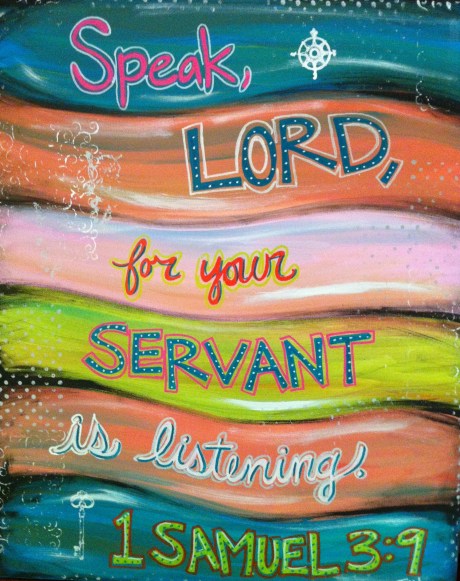 Speak,
LORD,
for your
SERVANT
is listening.
1 SAMUEL 3:9